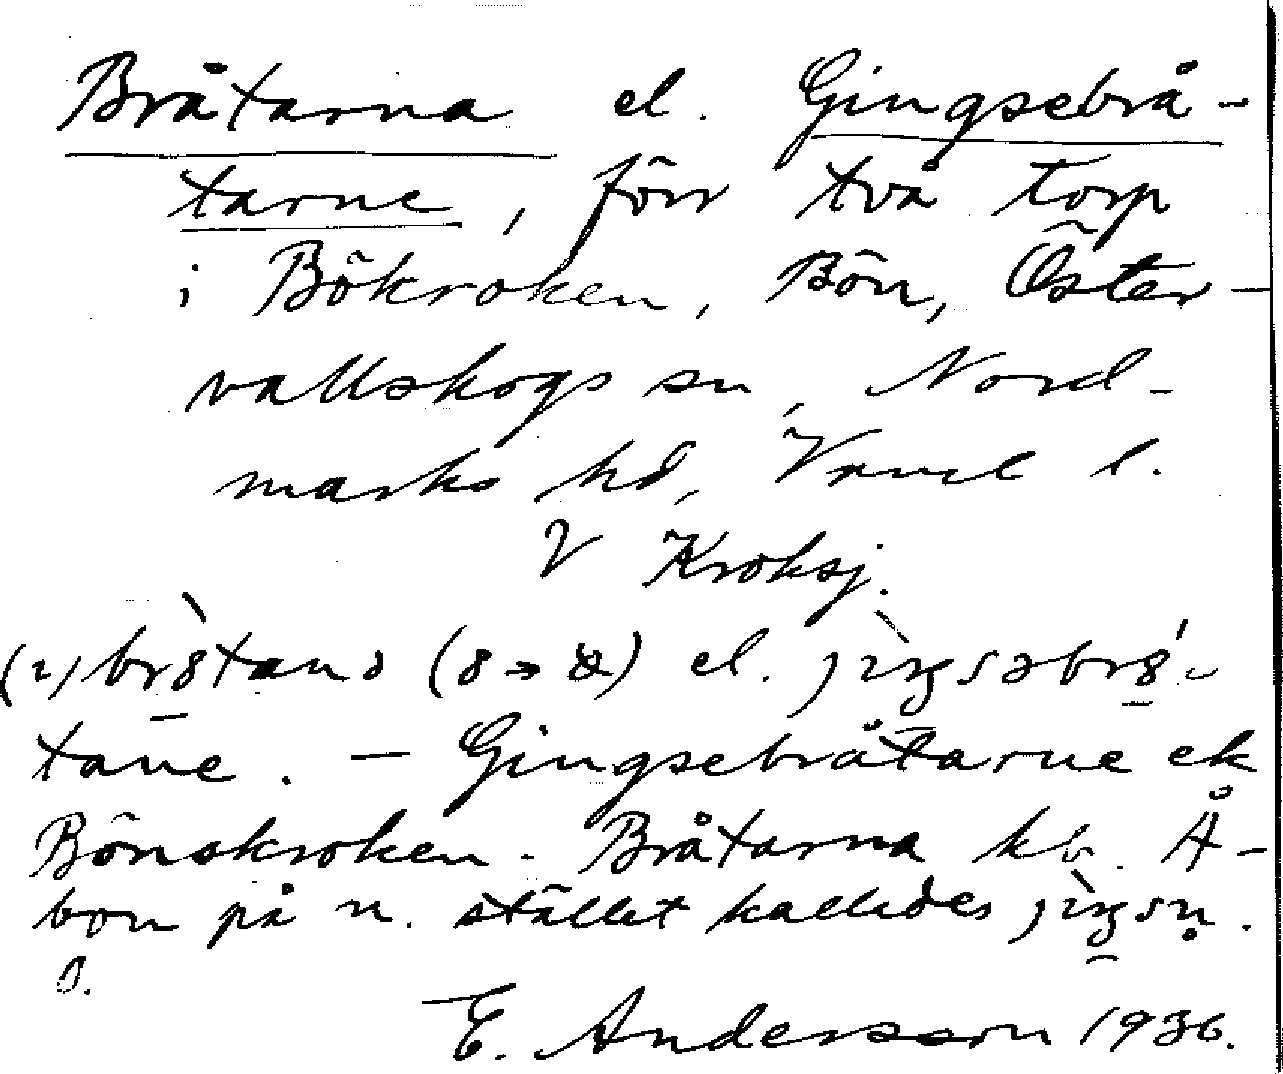 Bråtarna el. Gingsebrå-
tarne, förr två torp
i Bökroken, Bön, Öster-
vallskogs sn, Nord-
marks hd, Vrml l.
V Kroksj.
el.
. — Gingsebråtarne ek
Bönskroken. Bråtarna kb. Å-
bon på n. stället kallades
E. Andersson 1936.